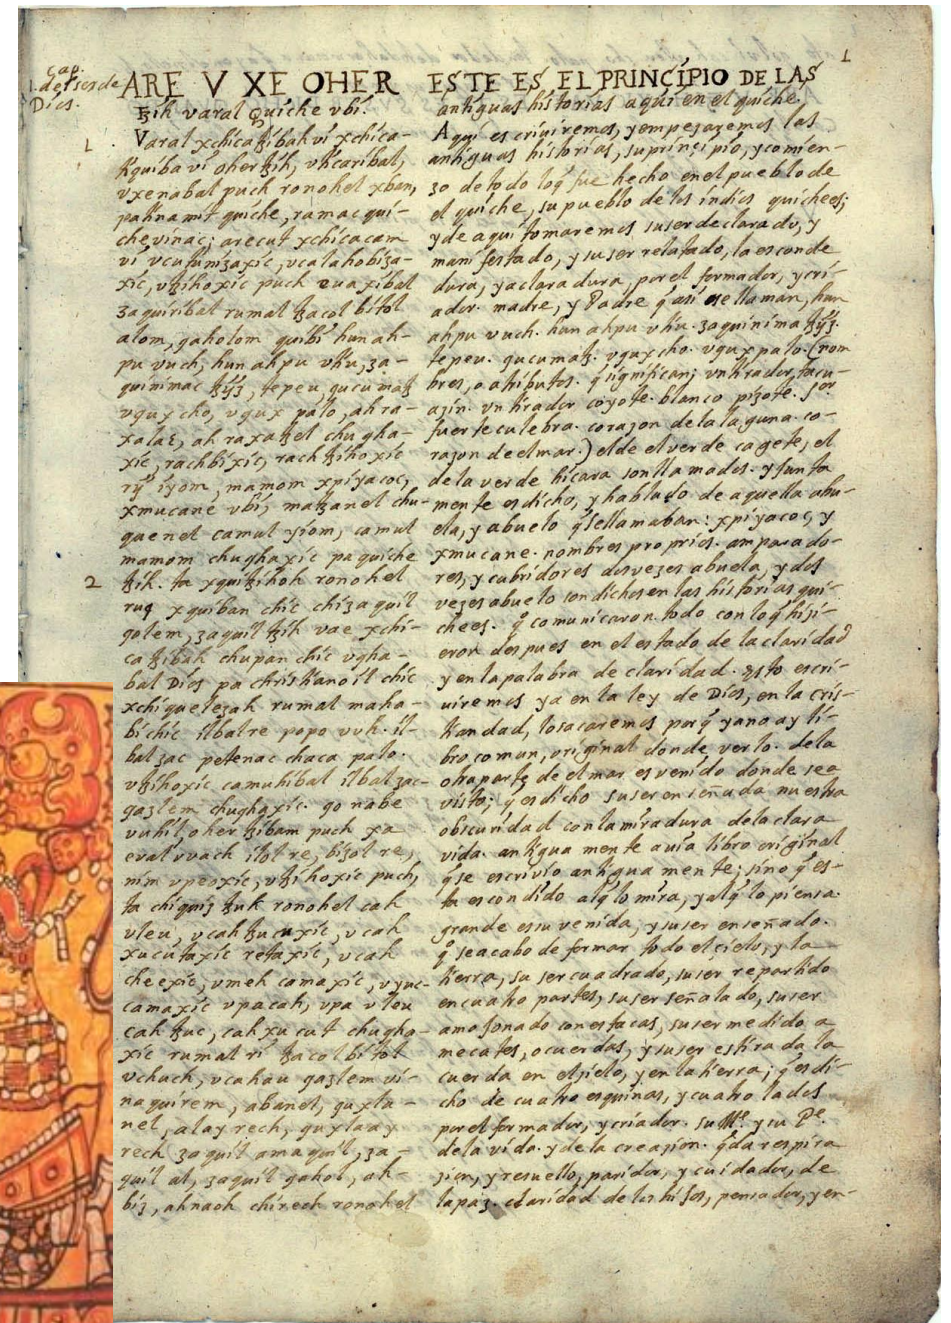 1
Cap.
1. del ser de
Dios.
ARE V XE OHER
ꜩih varal Quiche vbi.
1
Varal xchicaꜩibah vi xchica-
tiquiba vi oher ꜩih, vticaribal,
vxenabal puch ronohel xban,
pa tinamit quiche, ramac qui-
che vinac; arecut xchicacam
vi vcutunizaxic, vcalahobiza-
xic, vꜩihoxic puch euaxibal
zaquiribal rumal ꜩacol bitol
alom, qaholom quibi hun ah-
pu vuch, hun ahpu vtiu, za-
quinimac ꜩijz, tepeu, qucumatz
vqux cho, vqux palo, ah ra-
xa la3, ah raxa ꜩel chugha-
xic, rachbixic, rach ꜩihoxic
rij iyom, mamom xpiyacoc,
xmucane vbi, maꜩanel chu-
quenel camul yiom, camul
mamom chughaxic pa quiche
2
ꜩih. ta xquiꜩihoh ronohel
ruq xquiban chic chi zaquil
qolem, zaquil ꜩih vae xchi-
caꜩibah chupan chic vgha-
bal Dios pa christianoil chic
xchiquelezah rumal maha-
bi chic ilbal re popo vuh. il-
bal zac petenac chaca palo.
vꜩihoxic camuhibal ilbal zac-
qazlem chughaxic. qo nabe
vuhil, oher ꜩibam puch xa
eval vvach ilol re, bizol re,
nim vpeoxic, vꜩihoxic puch,
ta chiquiz ꜩuk ronohel cah
vleu, vcah ꜩucuxic, vcah
xucutaxic retaxic, vcah
cheexic, vmeh camaxic, vyuc-
camaxic vpa cah, vpa vleu
cah ꜩuc, cah xucut chugha-
xic rumal ri ꜩacol bitol
vchuch, vcahau qazlem vi-
naquirem, abanel, quxla-
nel, alay rech, quxlaay
rech zaquil amaquil, za-
quil al, zaquil qahol, ah-
biz, ahnaoh chirech ronohel
ESTE ES EL PRINCIPIO DE LAS
antiguas historias aqui en el quiche.
Aqui escriuiremos, y empezaremos las
antiguas historias, su principio, y comien-
zo de todo loq̃ fue hecho en el pueblo de
el quiche, su pueblo de los indios quichees;
y de aqui tomaremos su ser declarado, y
manifestado, y su ser relatado, la esconde
dura, y aclaradura, por el formador, y cri-
ador. madre, y Padre q̃ asi se llaman, hun
ahpu vuch. hun ahpu vtiu. zaquinima ꜩijz.
tepeu. qucumatz. vqux cho. vqux palo. (nom
bres, o atributos. q̃ significan; vn tirador, tacu-
azin. vn tirador coyote. blanco pizote. sor
fuerte culebra. corazon de la laguna. co-
razon de el mar.) el de el verde cagete, el
de la verde hicara son llamados. y junta
mente es dicho, y hablado de aquella abu-
ela, y abuelo q̃ se llamaban: xpiyacoc, y
xmucane. nombres proprios. amparado-
res, y cubridores dos vezes abuela, y dos
vezes abuelo son dichos en las historias qui-
chees. q̃ comunicaron todo con loq̃ hizi-
eron despues en el estado de la claridad
y en la palabra de claridad. Esto escri-
uiremos ya en la ley de Dios, en la cris-
tiandad, lo sacaremos porq̃ ya no ay li-
bro comun, original donde verlo. de la
otra parte de el mar es venido donde sea
visto; q̃ es dicho su ser enseñada nuestra
obscuridad con la miradura de la clara
vida. antigua mente auia libro original
q̃ se escrivio antigua mente; sino q̃ es-
ta escondido al q̃ lo mira, y al q̃ lo piensa.
grande es su venida, y su ser enseñado.
q̃ se acabo de formar todo el cielo, y la
tierra, su ser cuadrado, su ser repartido
en cuatro partes, su ser señalado, su ser
amojonado con estacas, su ser medido a
mecates, o cuerdas, y su ser estirada la
cuerda en el zielo, y en la tierra; q̃ es di-
cho de cuatro esquinas, y cuatro lados
por el formador, y criador. su Me. y su Pe.
de la vida. y de la creazion. q̃ da respira
zion, y resuello, paridor, y cuidador, de
la paz. claridad de los hijos, pensador, y en-